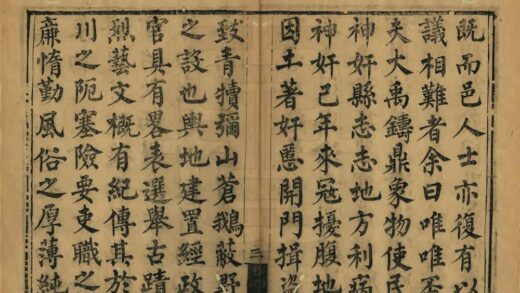 既而邑人士亦復有以
議相難者余曰唯唯否
夫大禹鑄鼎象物使民
神奸縣志志地方利病
神奸已年來冦擾腹地
因土著奸慝開門揖盜
三
致青犢彌山蒼鵝蔽野
之設也輿地建置經政
官具有畧表選舉古蹟
烈藝文概有紀傳其於
川之阨塞險要吏職之
廉惰勤風俗之厚薄純